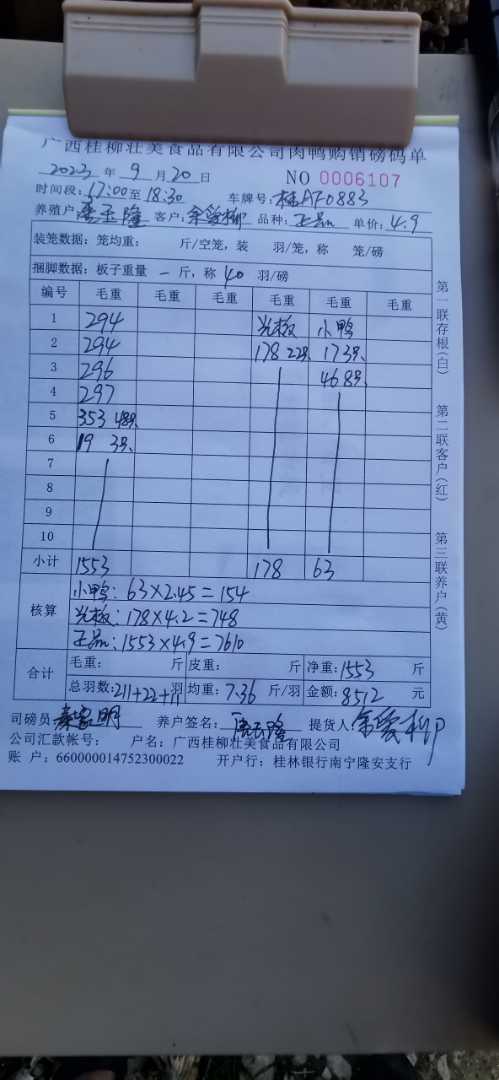 广西桂柳壮美食品有限公司肉鸭购销磅码单
2023 年 9 月 20 日 NO 0006107
时间段: 17:00 至 18:30 车牌号: 桂AF0883
养殖户 隆 客户: 余爱柳 品种: 正品 单价: 4.9
装笼数据: 笼均重: 斤/空笼, 装 羽/笼, 称 笼/磅
捆脚数据: 板子重量 一 斤, 称 40 羽/磅
编号 毛重 毛重 毛重 毛重 毛重 毛重
1 294 光板 小鸭
2 294 178 22只 17 3只
3 296 46 8只
4 297
5 353 48只
6 19 3只
7
8
9
10
小计 1553 178 63
核算
小鸭: 63×2.45=154
光板: 178×4.2=748
正品: 1553×4.9=7610
合计
毛重: 斤 皮重: 斤 净重: 1553 斤
总羽数: 211+22+11 均重: 7.36 斤/羽 金额: 8512 元
司磅员 明 养户签名: 隆 提货人: 余爱柳
公司汇款帐号: 户名: 广西桂柳壮美食品有限公司
账 户: 660000014752300022 开户行: 桂林银行南宁隆安支行
第一联存根(白)
第二联客户(红)
第三联养户(黄)